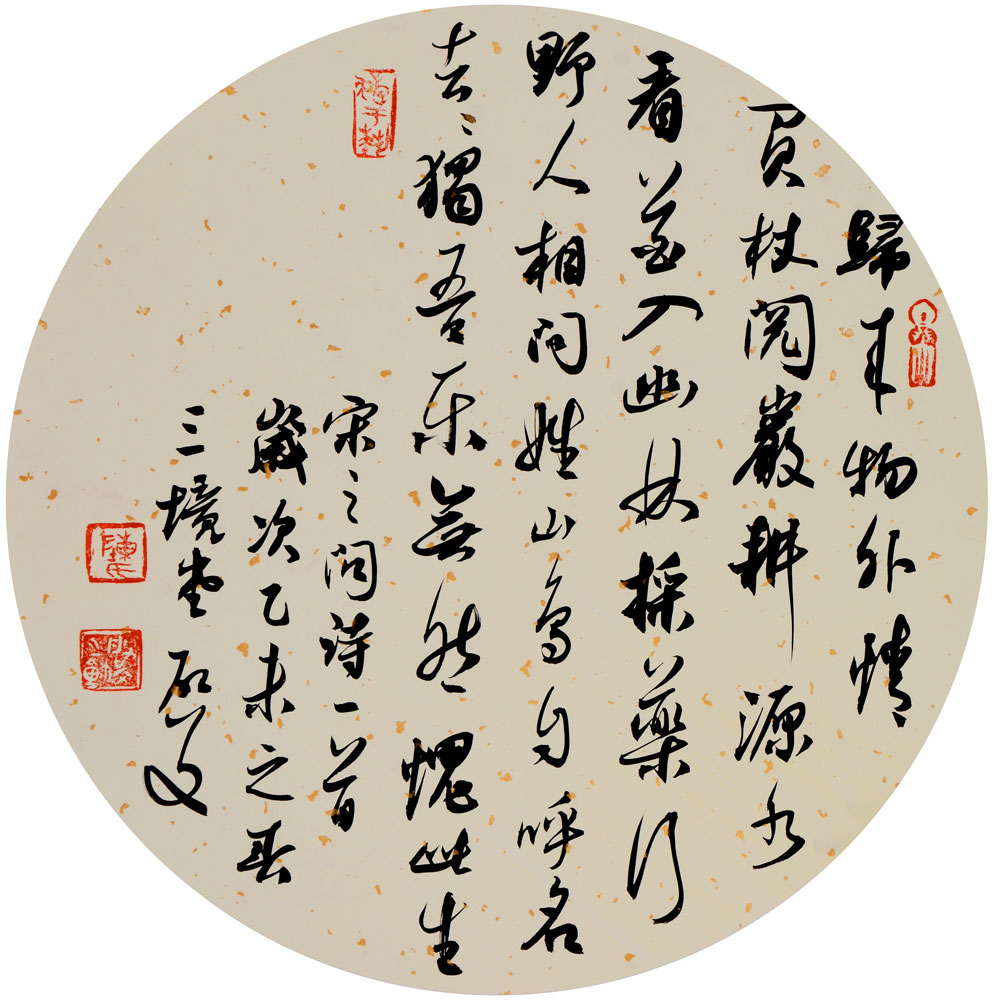 歸来物外情
負杖閲巖耕源水
看花入幽林採藥行
野人相問姓山鳥自呼名
去〻獨吾樂無然愧此生
宋之問詩一首
歲次乙未之春
三境堂
陳氏